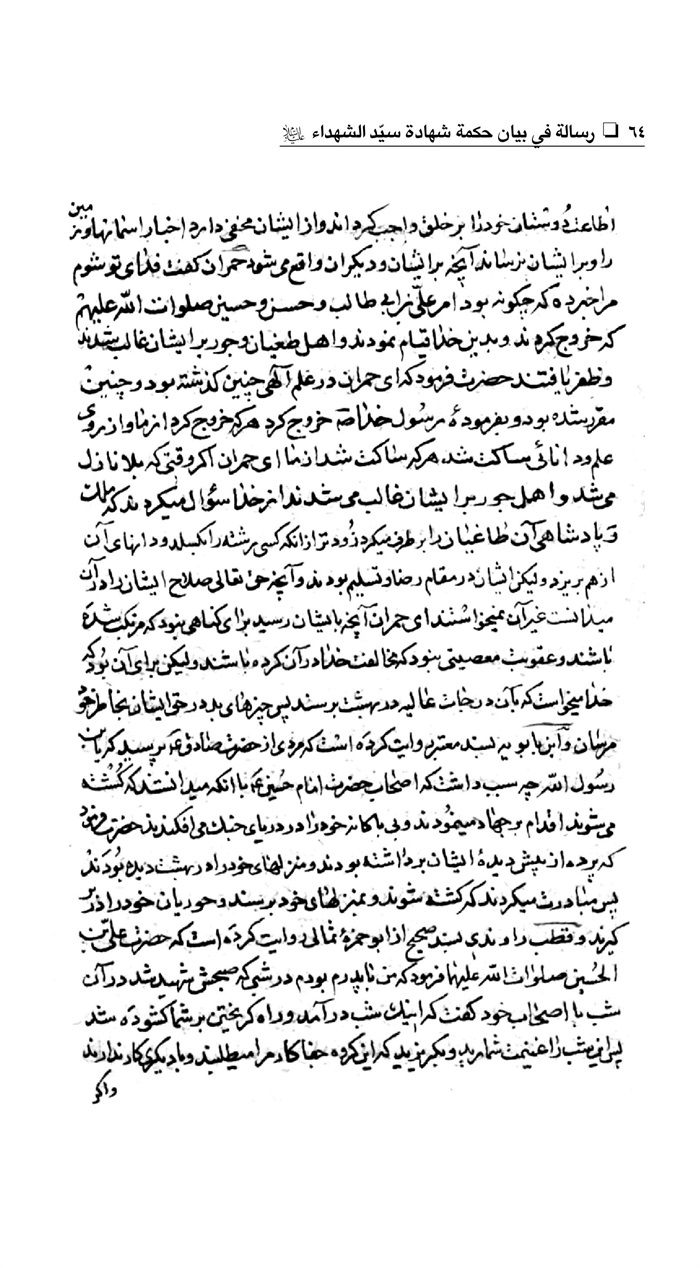 ٦٤ ❑ رسالة في بيان حكمة شهادة سيّد الشهداء عليه السلام
اطاعت دوستان خود را بر خلق واجب کرداند و از ایشان مخفی دارد اخبار اسمانها و زمین
را و بر ایشان نرساند آنچه بر ایشان و دیکران واقع می شود حمران کفت فدای تو شوم
مرا خبر ده که چکونه بود امر علیّ بن ابی طالب و حسن و حسین صلوات الله علیهم
که خروج کردند و بدین خدا قیام نمودند و اهل طغیان و جور بر ایشان غالب شدند
و ظفر یافتند حضرت فرمود که ای حمران در علم آلهی چنین کذشته بود و چنین
مقرر شده بود و بفرمودهٔ رسول خدا صه خروج کرد هر که خروج کرد از ما و از روی
علم و دانائی ساکت شد هر که ساکت شد از ما ای حمران اکر وقتی که بلا نازل
می شد و اهل جور بر ایشان غالب می شدند از خدا سؤال میکردند که ملک
و پادشاهی آن طاغیان را برطرف میکرد زودتر از آنکه کسی رشته را بکسلد و دانهای آن
از هم بریزد ولیکن ایشان در مقام رضا و تسلیم بودند و آنچه حق تعالی صلاح ایشان را در آن
میدانست غیر آن نمیخواستند ای حمران آنچه بایشان رسید برای کناهی نبود که مرتکب شده
باشند و عقوبت معصیتی نبود که مخالفت خدا در آن کرده باشند ولیکن برای آن بود که
خدا میخواست که بآن درجات عالیه در بهشت برسند پس چیزهای بد در حق ایشان بخاطر خود
مرسان و ابن بابویه بسند معتبر روایت کرده است که مردی از حضرت صادق ع پرسید که یا بن
رسول الله چه سبب داشت که اصحاب حضرت امام حسین ع با آنکه میدانستند که کشته
می شوند اقدام بر جهاد مینمودند و بی باکانه خود را در دریای جنک می افکندند حضرت فرمود
که پرده از پیش دیدهٔ ایشان برداشته بودند و منزلهای خود را در بهشت دیده بودند
پس مبادرت میکردند که کشته شوند و بمنزلهای خود برسند و حوریان خود را در بر
کیرند و قطب راوندی بسند صحیح از ابو حمزهٔ ثمالی روایت کرده است که حضرت علی بن
الحسین صلوات الله علیهما فرمود که من با پدرم بودم در شبی که صبحش شهید شد در آن
شب با اصحاب خود کفت که اینک شب در آمد و راه کریختن بر شما کشوده شد
پس این شب را غنیمت شمارید و بکریزید که این کروه جفا کار مرا میطلبند و با دیکری کار ندارند
و اکر